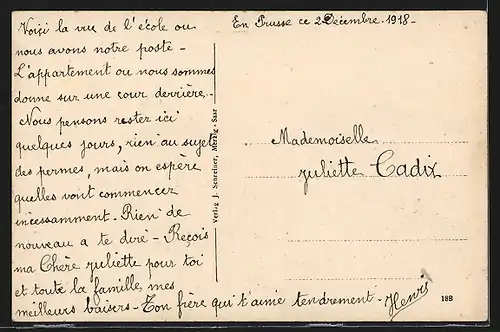 Voiçi la vue de l'école ou
nous avons notre poste -
L'appartement ou nous sommes
donne sur une cour derrière.-
Nous pensons rester ici
quelques jours, rien au sujet
des permes, mais on espère
quelles vont commencez
incessamment - Rien de
nouveau a te dire - Reçois
ma Chère juliette pour toi
et toute la famille mes
meilleurs baisers - Ton frère qui t'aime tendrement - Henri
En Prusse ce 2 Décembre - 1918 -
Mademoiselle
juliette Cadix
Verlag J. Schreiner, Merzig-Saar
188